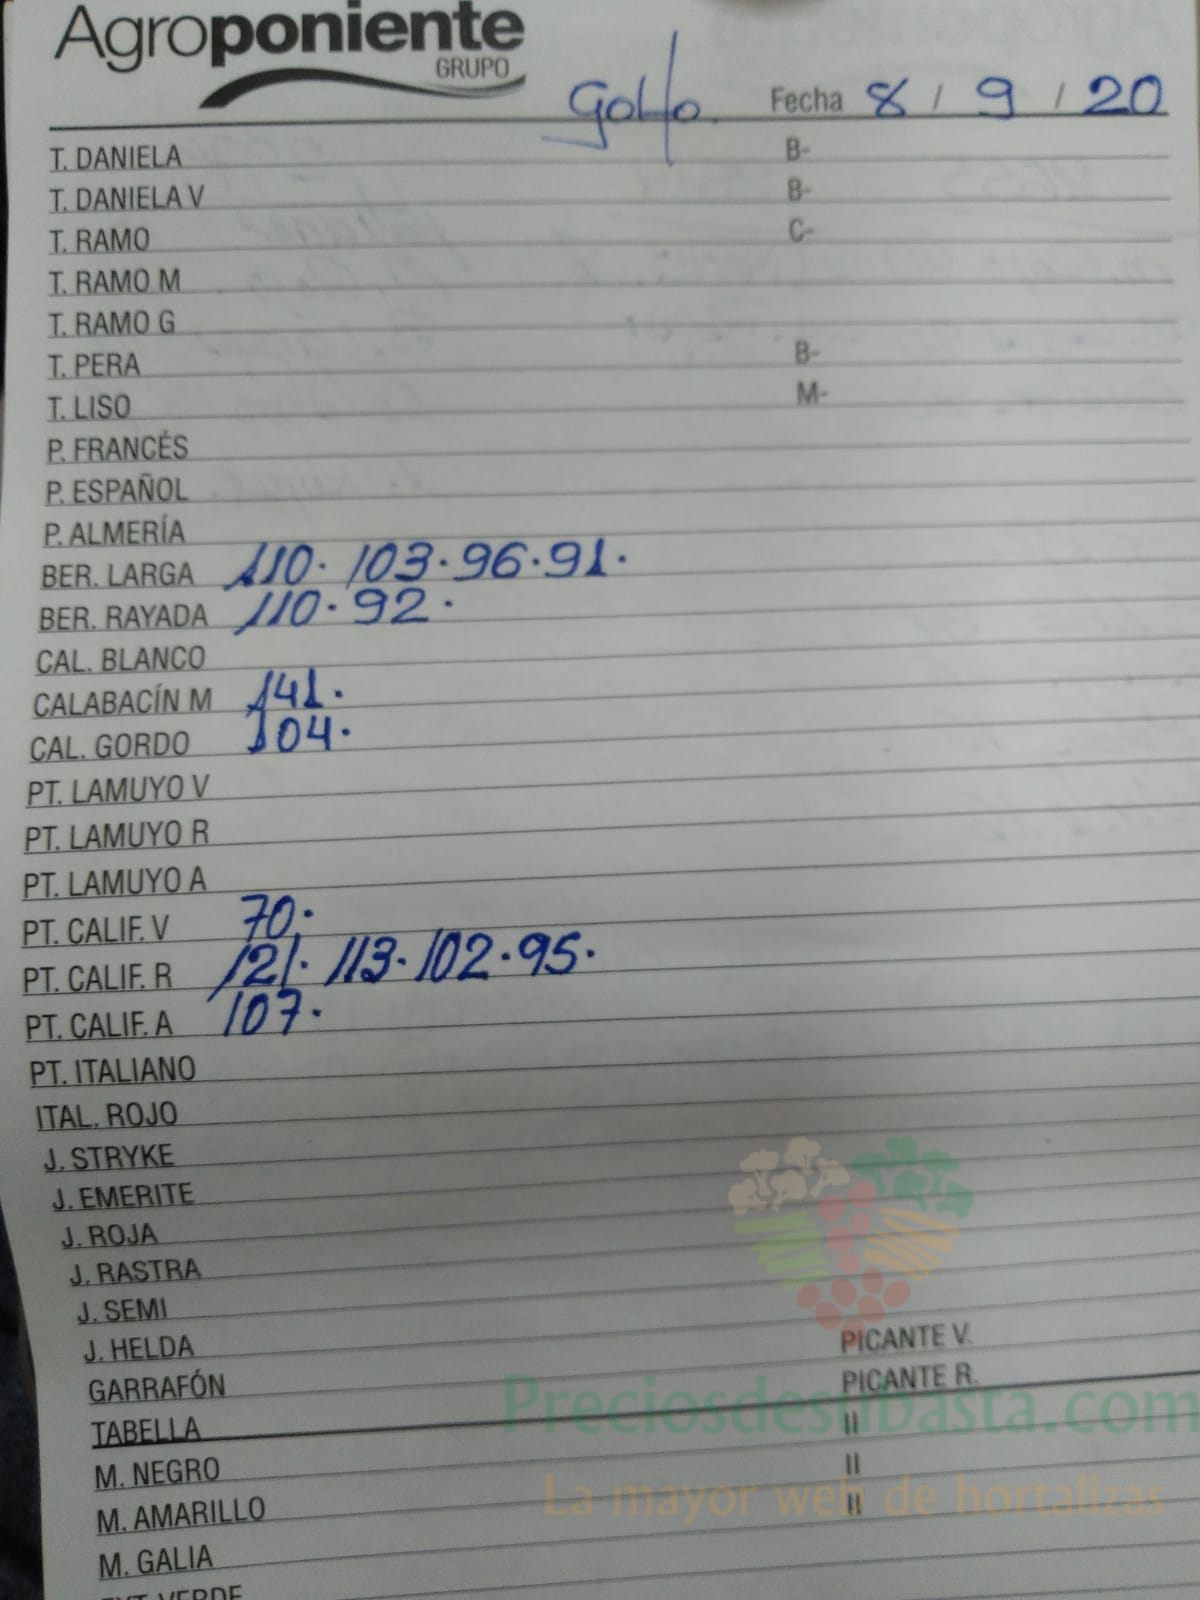 Agroponiente
GRUPO
Golfo. Fecha 8 / 9 / 20
T. DANIELA B-
T. DANIELA V B-
T. RAMO C-
T. RAMO M
T. RAMO G
T. PERA B-
T. LISO M-
P. FRANCÉS
P. ESPAÑOL
P. ALMERÍA
BER. LARGA 110. 103. 96. 91.
BER. RAYADA 110. 92.
CAL. BLANCO
CALABACÍN M 141.
CAL. GORDO 104.
PT. LAMUYO V
PT. LAMUYO R
PT. LAMUYO A
PT. CALIF. V 70.
PT. CALIF. R 121. 113. 102. 95.
PT. CALIF. A 107.
PT. ITALIANO
ITAL. ROJO
J. STRYKE
J. EMERITE
J. ROJA
J. RASTRA
J. SEMI
J. HELDA PICANTE V.
GARRAFÓN PICANTE R.
Preciosdesubasta.com
TABELLA II
M. NEGRO II
La mayor web de hortalizas
M. AMARILLO II
M. GALIA
EXT. VERDE